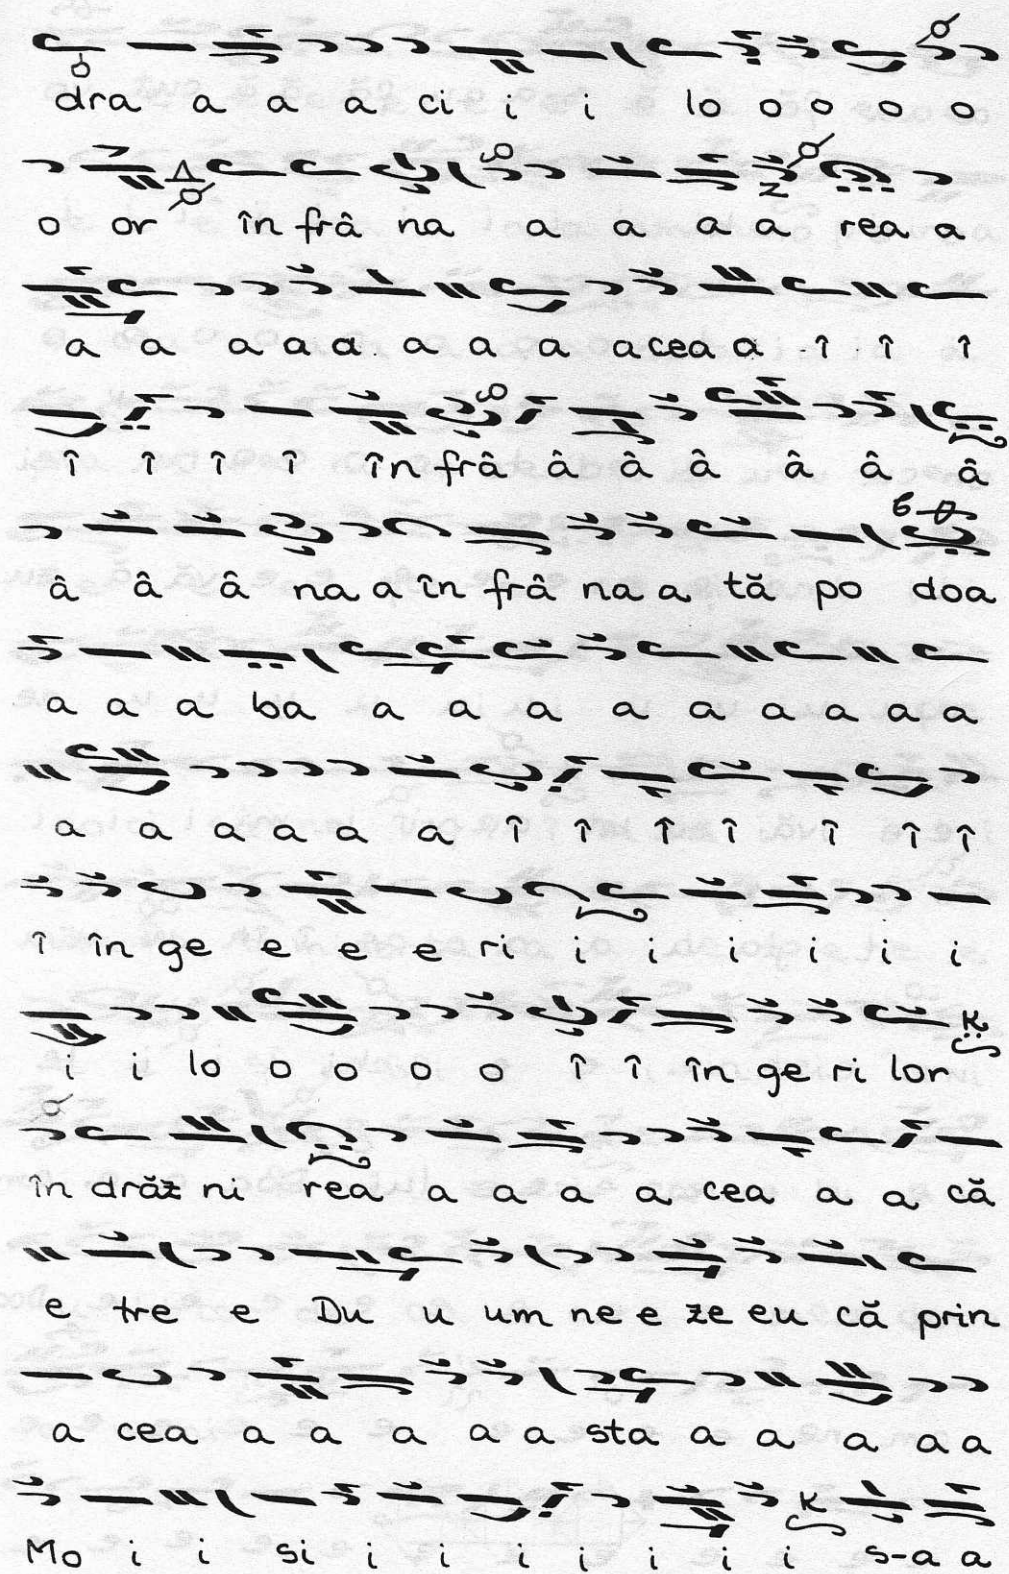 dra a a a ci i i lo o o o o
o or în frâ na a a a a rea a
a a a a a a a a a cea a î î î
î î î î în frâ â â â â â â
â â â na a în frâ na a tă po doa
a a a ba a a a a a a a a a
a a a a a a î î î î î î î
î în ge e e e ri i i i i i i
i i lo o o o o î î în ge ri lor
în drăz ni rea a a a a cea a a că
e tre e Du u um ne e ze eu că prin
a cea a a a a a sta a a a a a
Mo i i si i i i i i i i s-a a